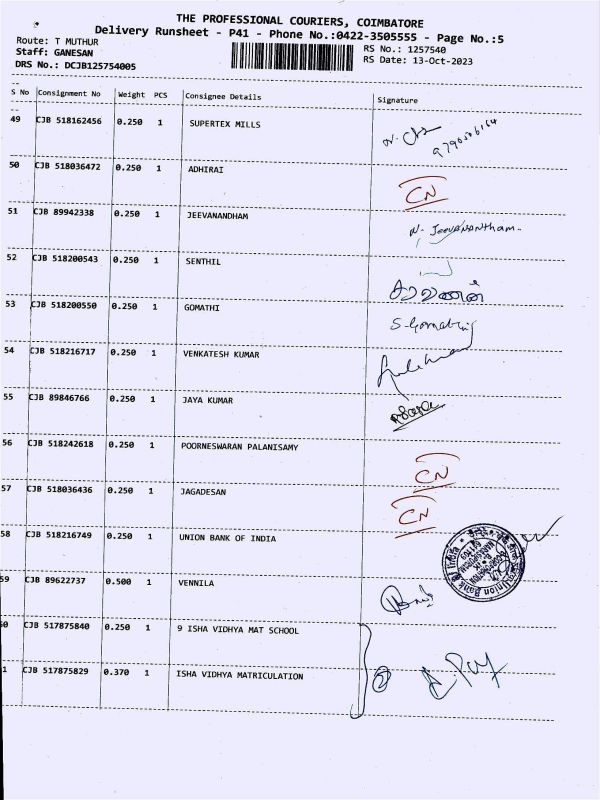 THE PROFESSIONAL COURIERS, COIMBATORE
Delivery Runsheet - P41 - Phone No.:0422-3505555 - Page No.:5
Route: T MUTHUR
RS No.: 1257540
Staff: GANESAN
RS Date: 13-Oct-2023
DRS No.: DCJB125754005
S No Consignment No Weight PCS Consignee Details Signature
49 CJB 518162456 0.250 1 SUPERTEX MILLS
50 CJB 518036472 0.250 1 ADHIRAI CN
51 CJB 89942338 0.250 1 JEEVANANDHAM N. Jeevanantham-
52 CJB 518200543 0.250 1 SENTHIL சரவணன்
53 CJB 518200550 0.250 1 GOMATHI S. Gomathi
54 CJB 518216717 0.250 1 VENKATESH KUMAR
55 CJB 89846766 0.250 1 JAYA KUMAR
56 CJB 518242618 0.250 1 POORNESWARAN PALANISAMY CN
57 CJB 518036436 0.250 1 JAGADESAN CN
58 CJB 518216749 0.250 1 UNION BANK OF INDIA Union Bank of India
59 CJB 89622737 0.500 1 VENNILA
0 CJB 517875840 0.250 1 9 ISHA VIDHYA MAT SCHOOL
1 CJB 517875829 0.370 1 ISHA VIDHYA MATRICULATION 2